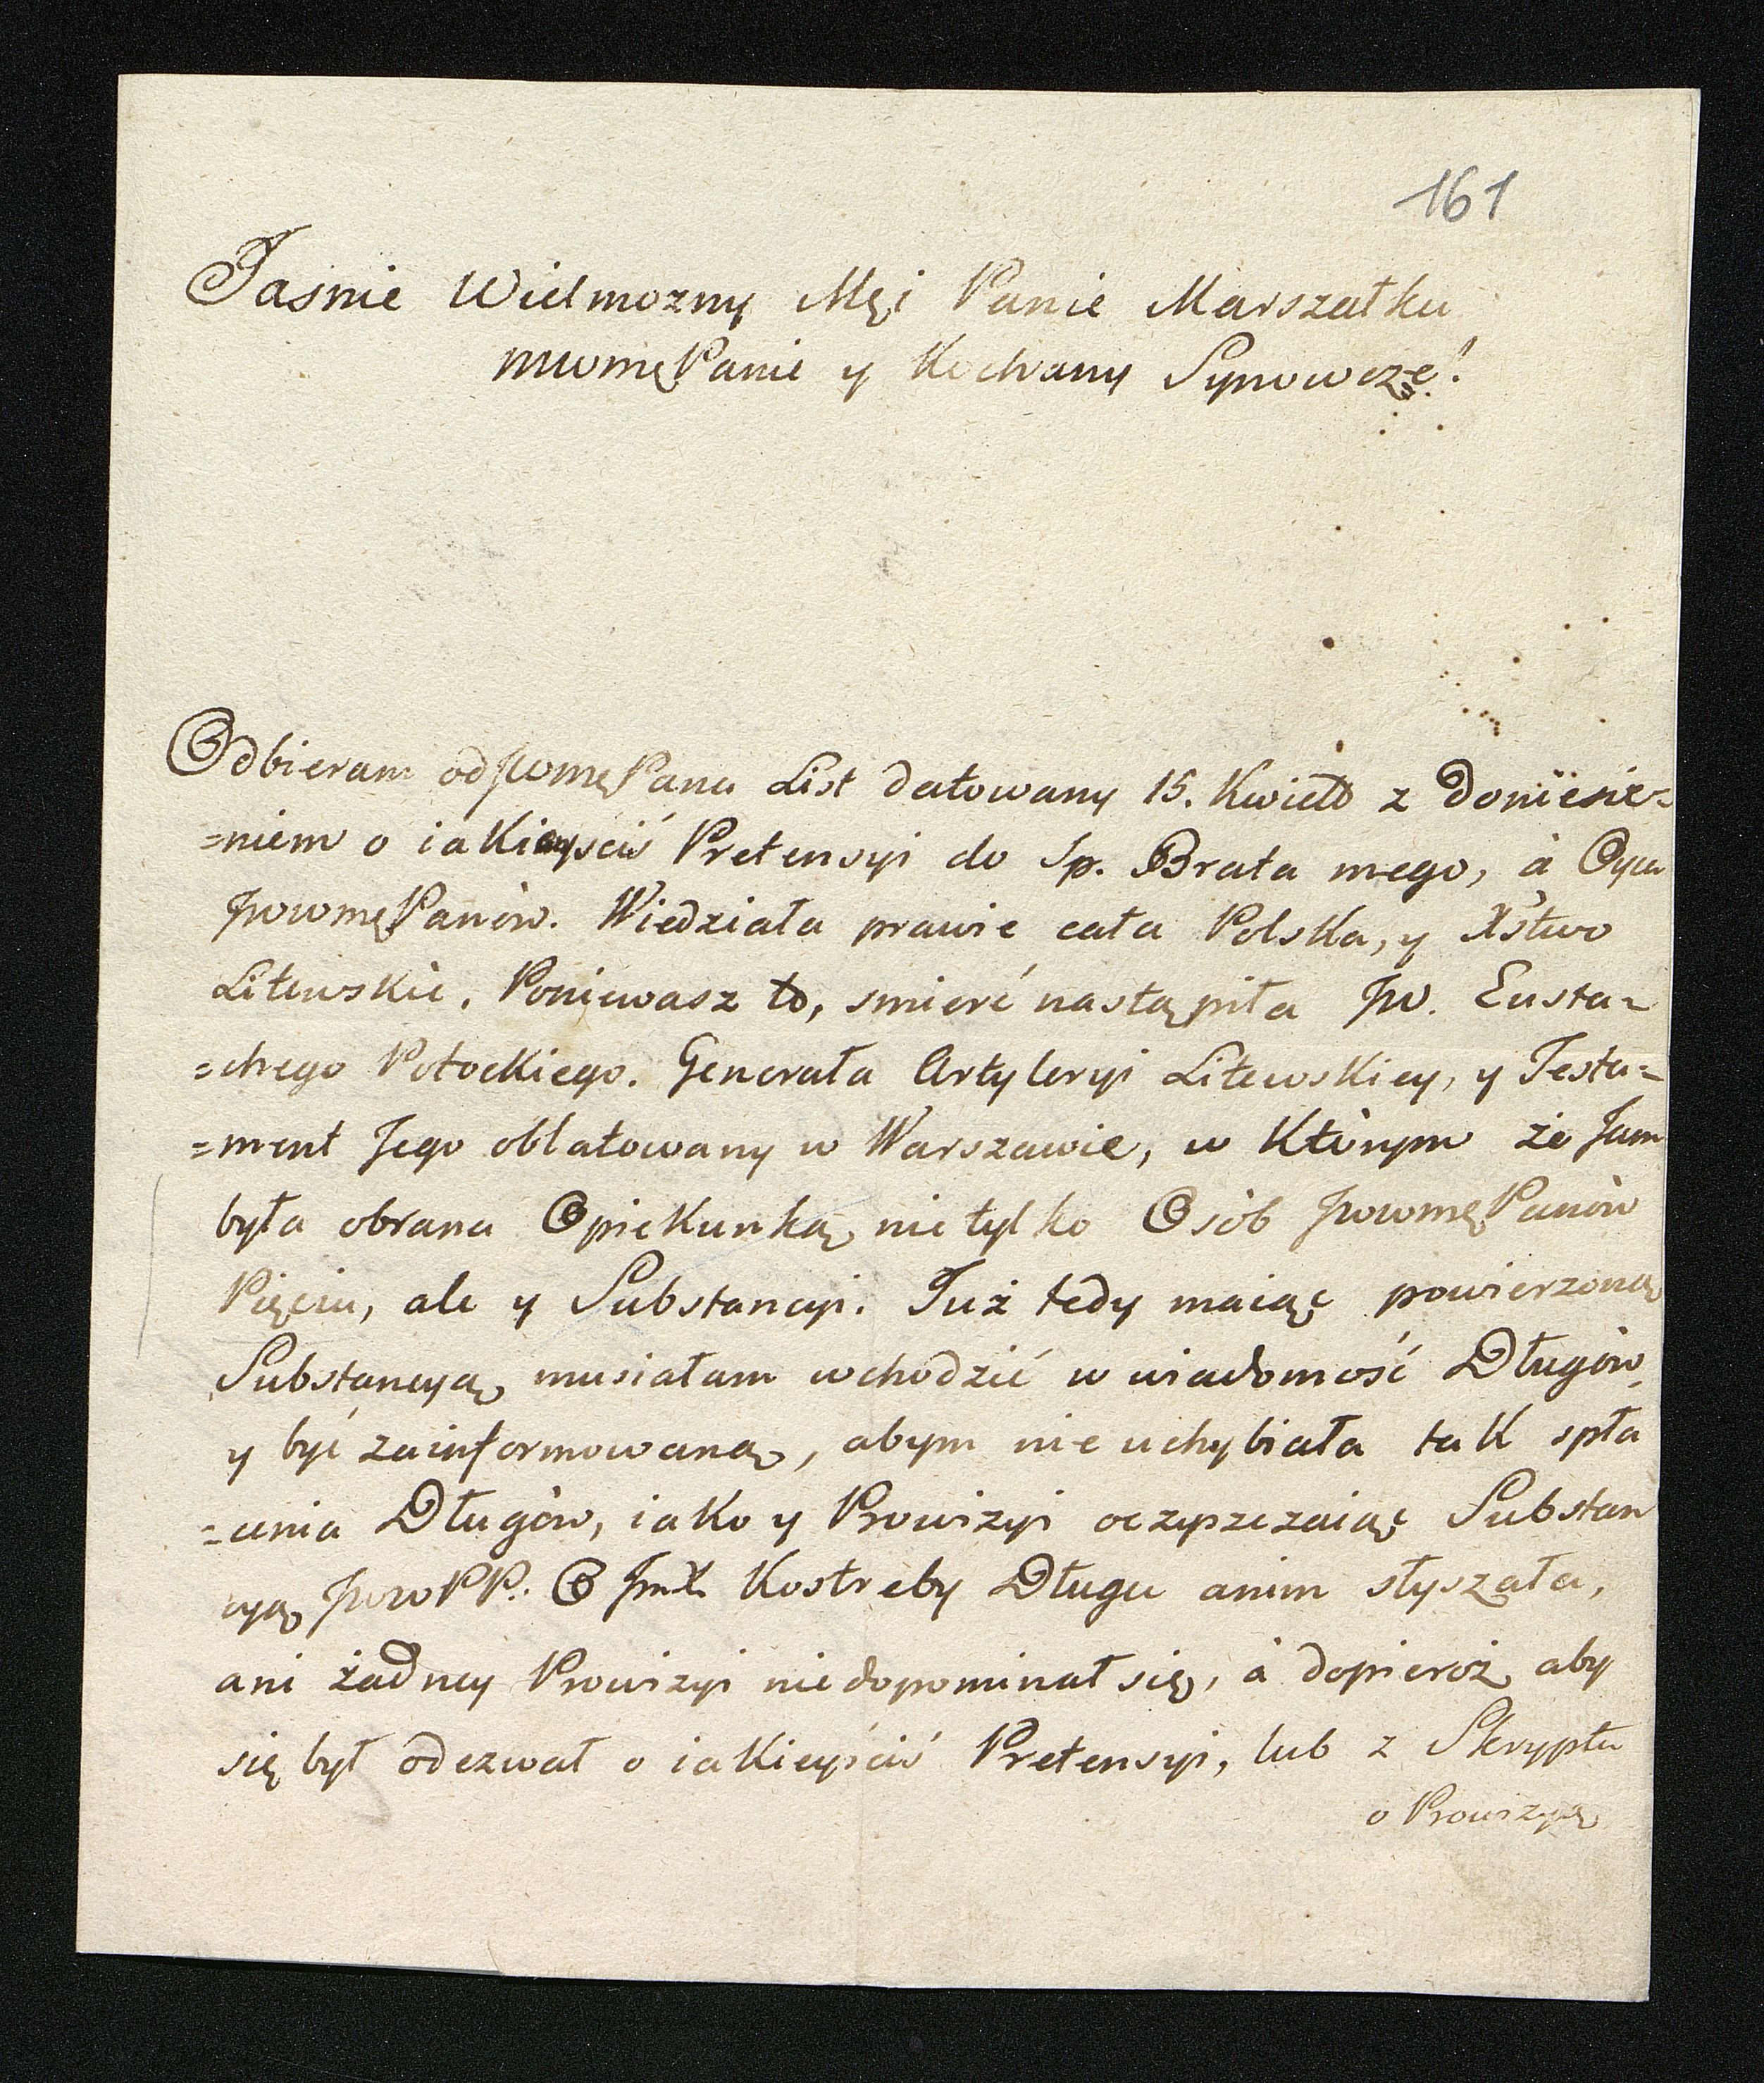 161
Jasnie Wielmozny Męi Panie Marszałku
mwmę Panie y Kochany Synowczę!
Odbieram od Jwmę Pana List datowany 15. Kwiet z doniesie=
=niem o iakieyściś Pretensyi do Sp. Brata mego, à Oyca
JwwmęPanów. Wiedziała prawie cała Polska, y Xstwo
Litewskie. Poniewasz to, smierć nastąpiła Jw. Eusta=
=chego Potockiego. Generała Artyleryi Litewskiey, y Testa=
=ment Jego oblatowany w Warszawie, w Którym że Jam
była obrana Opiekunką nie tylko Osób JwwmęPanów
Pięciu, ale y Substancyi. Już tedy maiąc powierzoną
Substancyą musiałam wchodzić w wiadomość Długów,
y być zainformowaną, abym nie uchybiała tak spła
=cania Długów, iako y Prowizyi oczyszczaiąc Substan
cyą JwwPP. O JmX Kostreby Długu anim słyszała,
ani żadney Prowizyi nie dopominał się, à dopieroż aby
się był odezwał o iakieyściś Pretensyi, lub z Skryptu
o Prowizyą